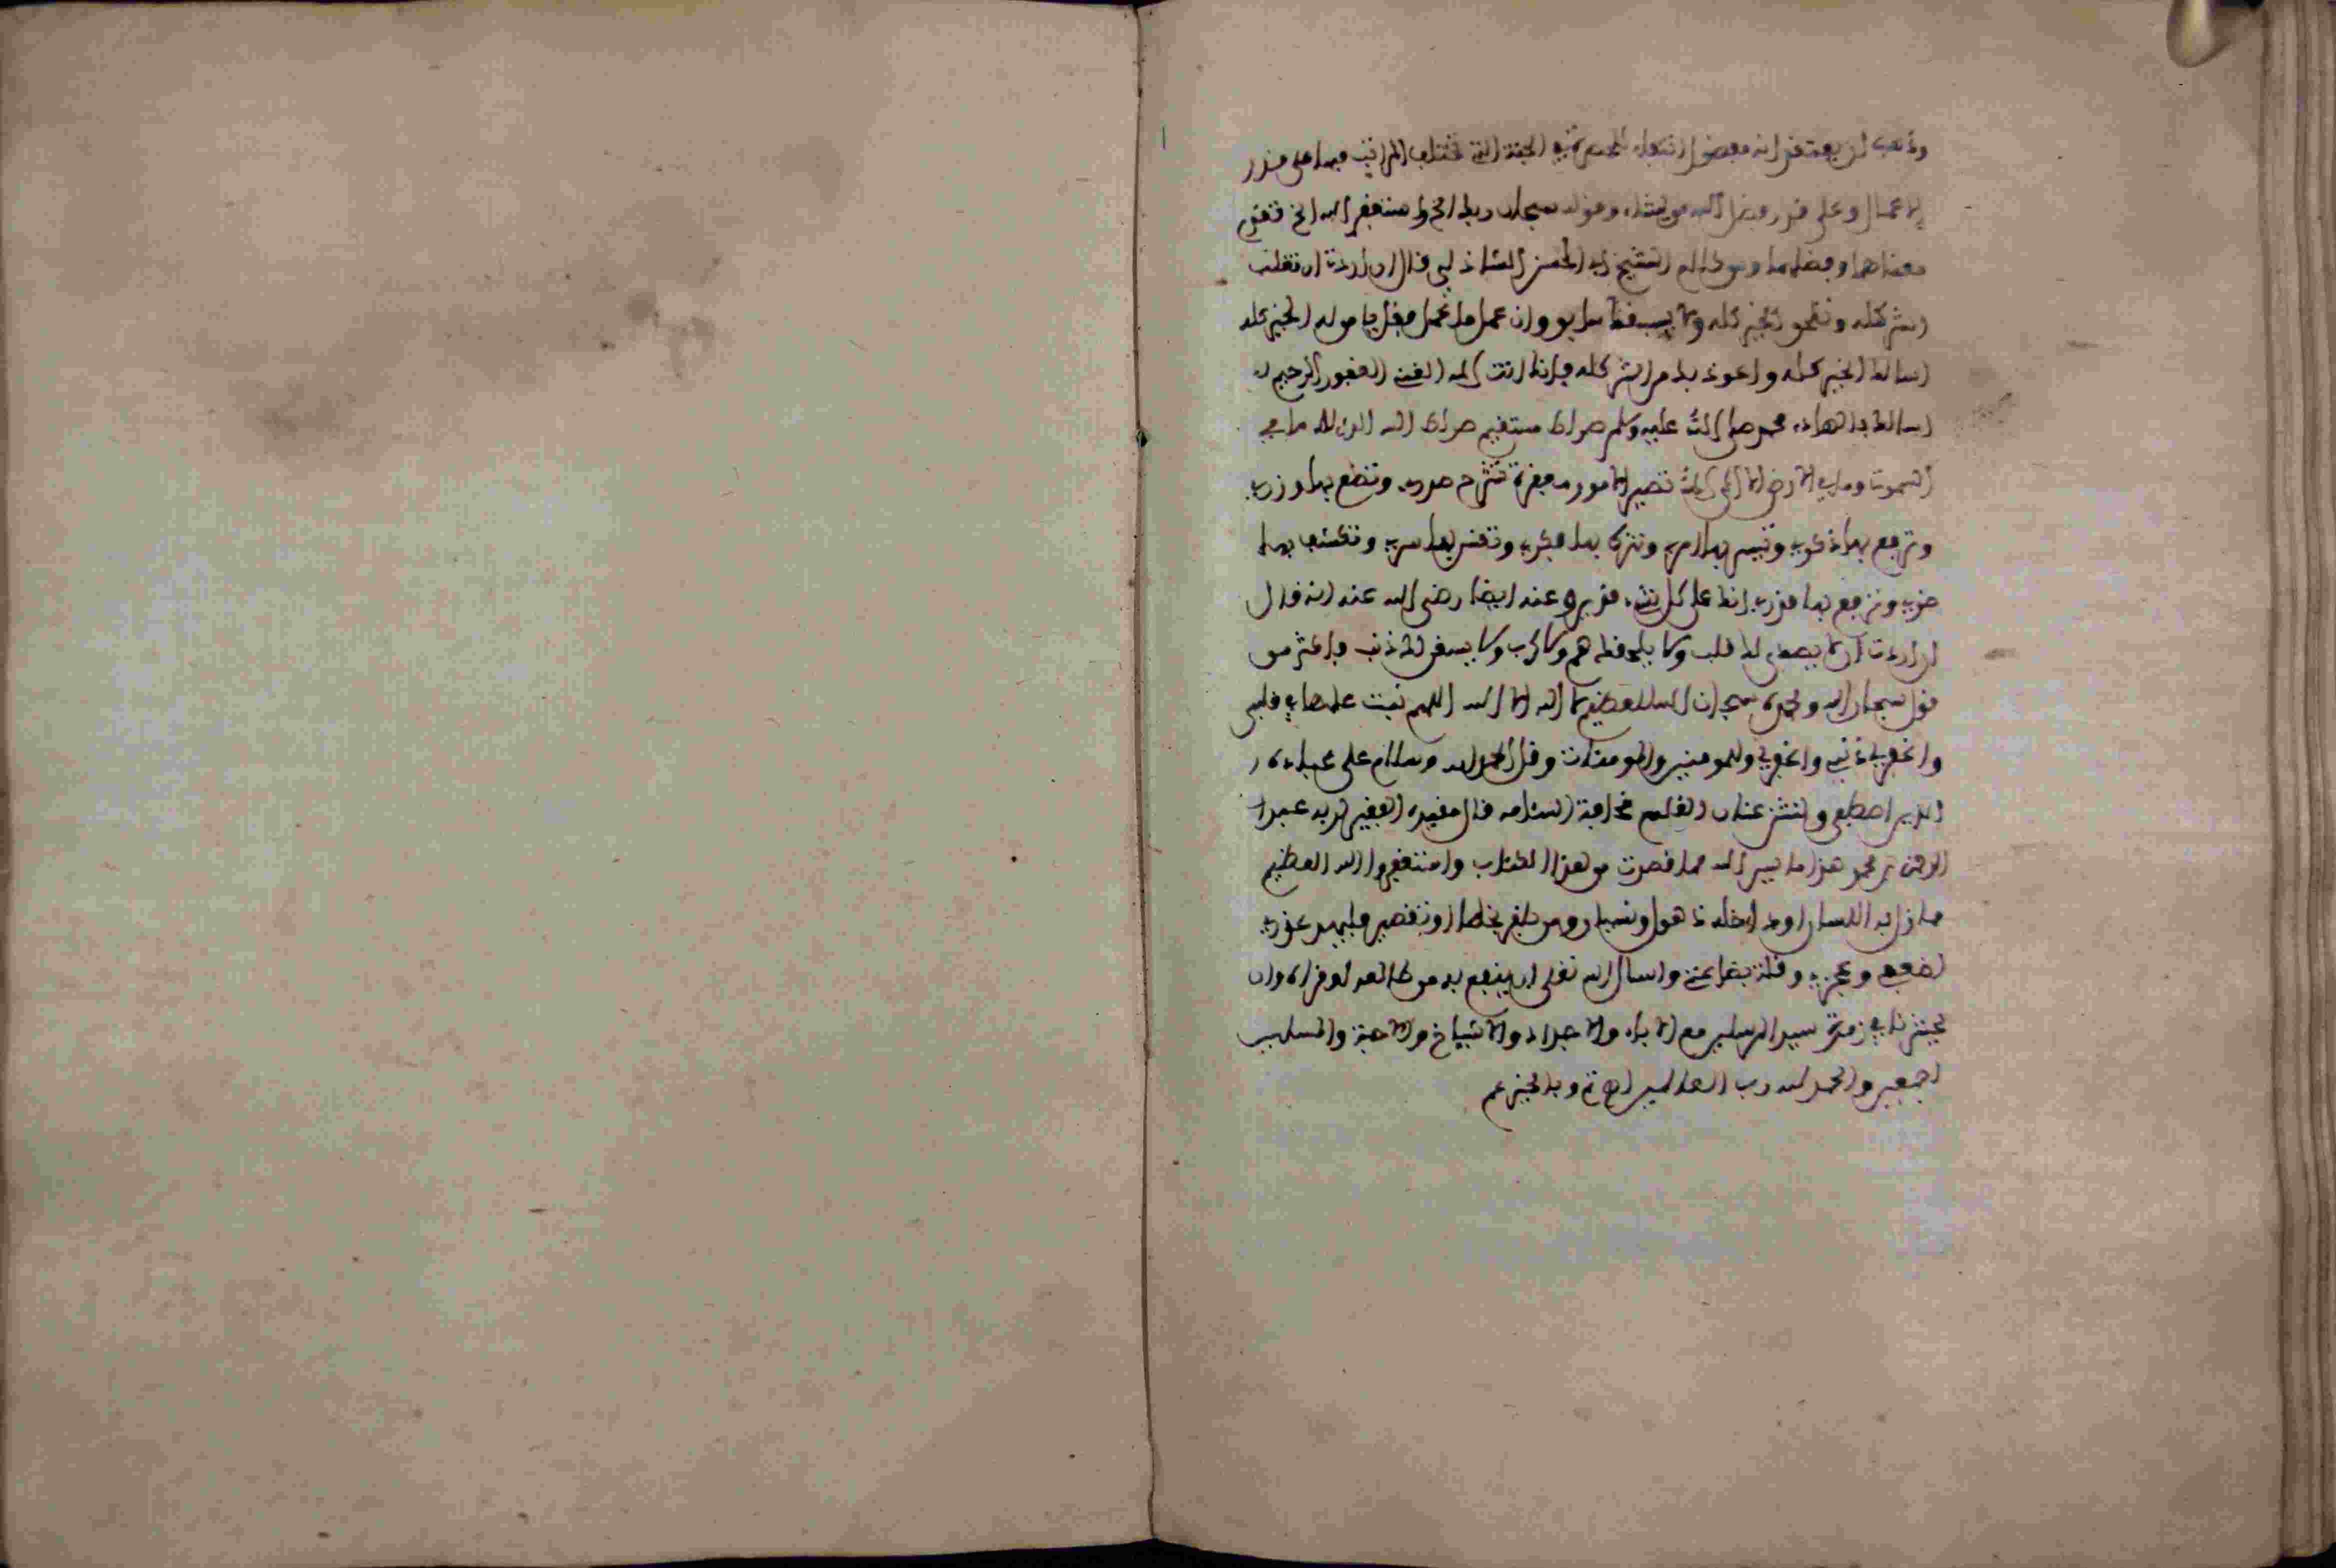 الاعمال وعلى قدر فضل الله من يشاء وقوله سبحان ربك الخ واستغفر الله الخ تقدم
معناهما وفضلهما ومن كلام الشيخ ابي الحسن الشاذلي قال ان اردت ان تغلب
الشر كله وتلحق الخير كله ولا يسبقك سابق وان عمل ما عمل فقل يا من له الخير كله
اسالك الخير كله واعوذ بك من الشر كله فانك انت الله الغني الغفور الرحيم
اسالك بالهادي محمد صلى الله عليه وسلم صراط مستقيم صراط الله الذي له ما في
السموت وما في الارض الا الى الله تصير الامور مغفرة تشرح صدري وتضع بها وزري
وترفع بها ذكري وتيسر بها امري وتنزه بها فكري وتقدس بها سري وتكشف بها
ضري وترفع بها قدري انك على كل شيء قدير وعنه ايضا رضي الله عنه انه قال
ان اردت ان لا يصدى لك قلب ولا يلحقك هم ولا كرب ولا يبقى لك ذنب فاكثر من
قول سبحان الله وبحمده سبحان الله العظيم لا اله الا الله اللهم ثبت علمها في قلبي
واغفر لي ذنبي واغفر لي وللمومنين والمومنات وقل الحمد لله وسلام على عباده
الذين اصطفى ولنثن عنان القلم مخافة السئامه قال مقيده الفقير لربه عبد
الرحمن بن محمد هذا ما يسر الله مما قصدت من هذا الكتاب واستغفر الله العظيم
مما زل به اللسان او داخله ذهول ونسيان ومن ظفر بخطا او تقصير فليمهد عذري
لضعفي وعجزي وقلة بضاعتي واسال الله تعلى ان ينفع به من طالعه او قراه وان
يحشرنا في زمرة سيد المرسلين مع الاباء والاجداد والاشياخ والاحبة والمسلمين
اجمعين والحمد لله رب العالمين اهـ تم وبالخير عم